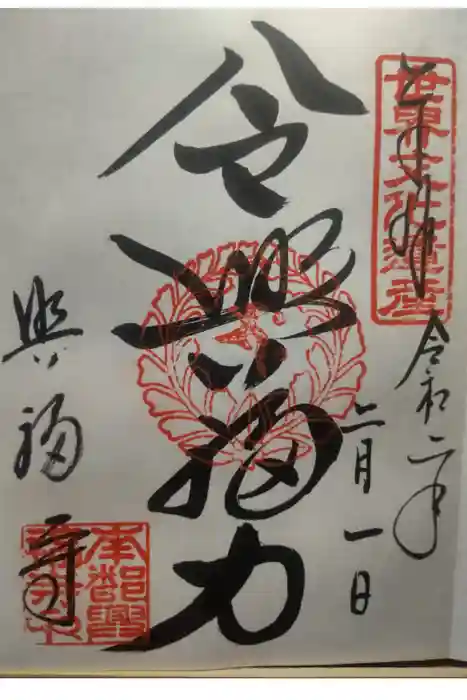 世界文化遺産
奉拝
令和二年
二月一日
令興福力
興福寺
南都興